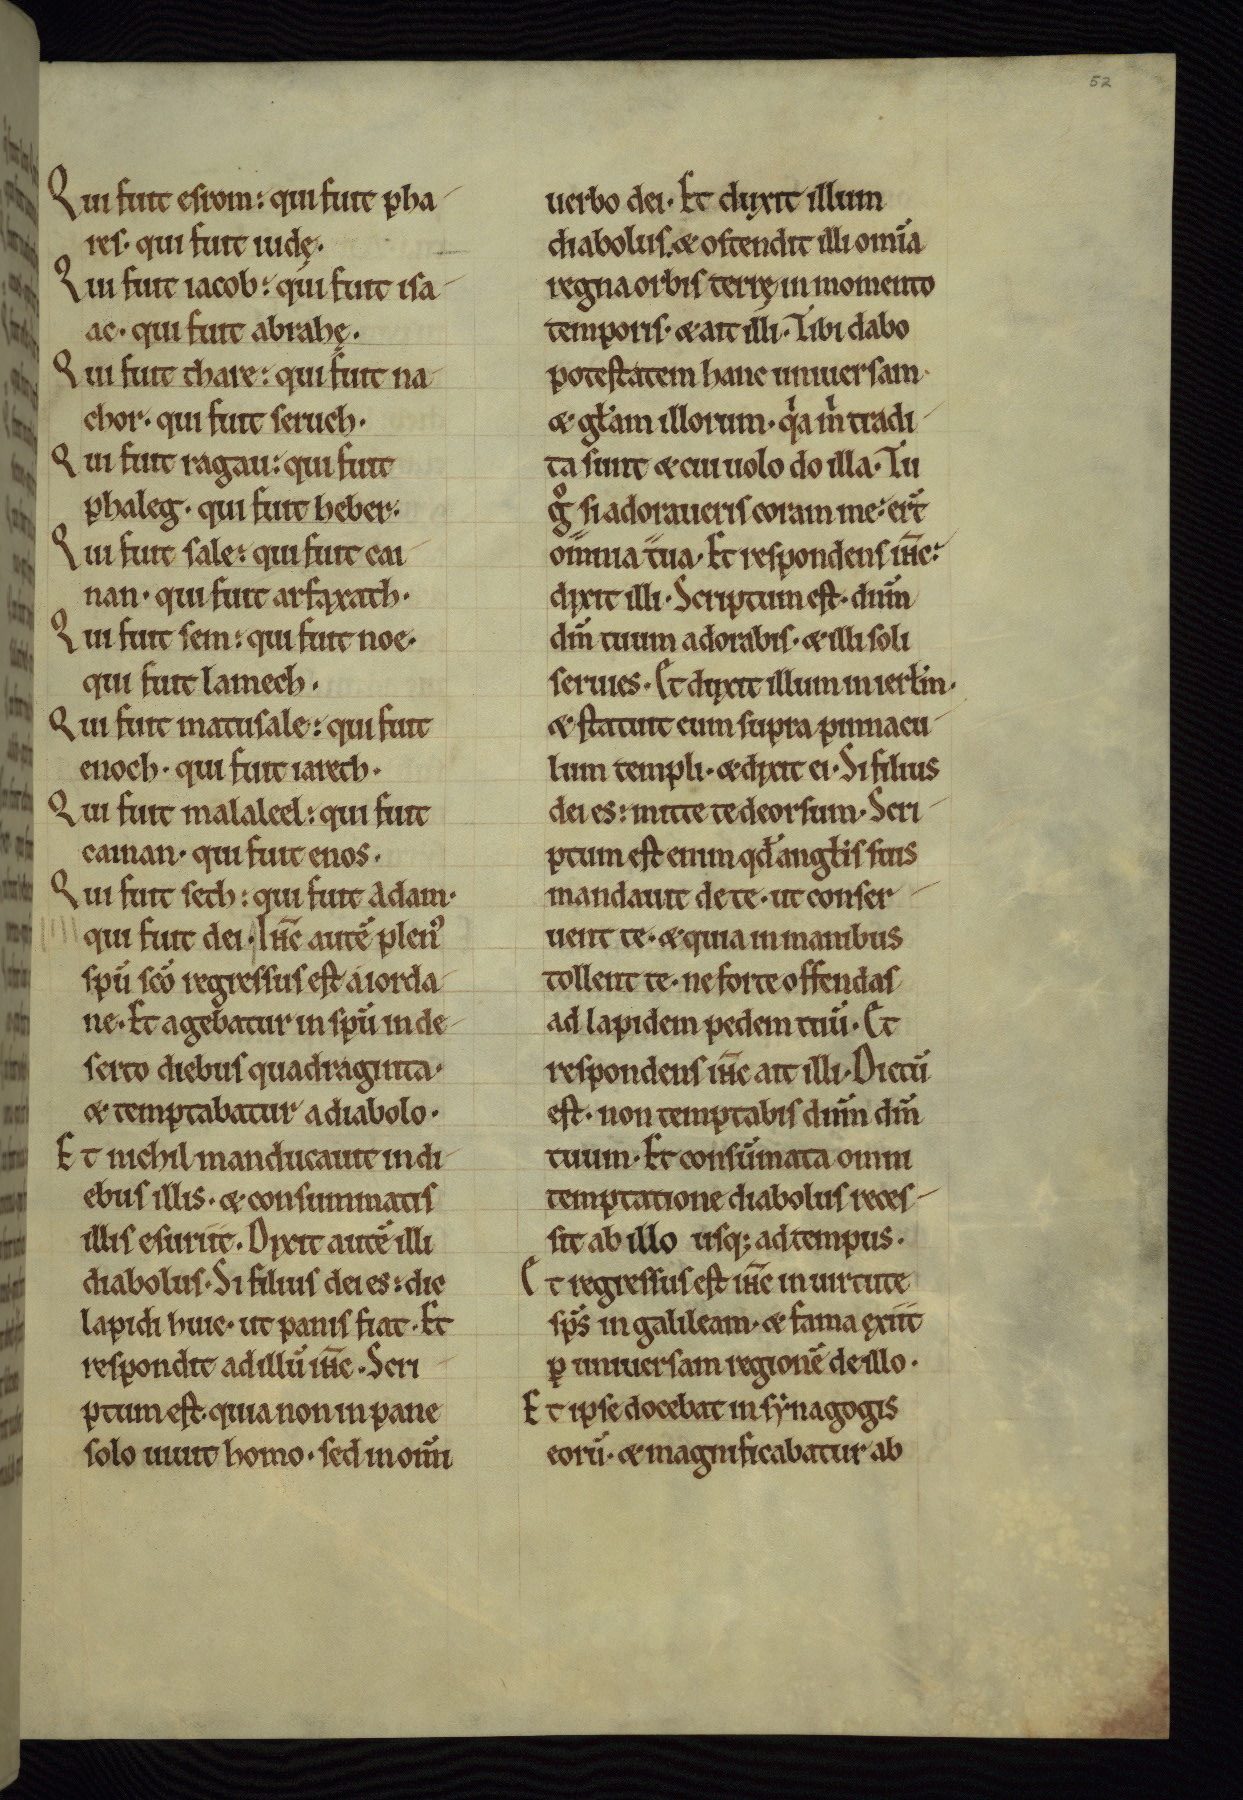 52
Qui fuit esrom: qui fuit pha-
res· qui fuit iudę·
Qui fuit iacob: qui fuit isa-
ac· qui fuit abrahę·
Qui fuit thare: qui fuit na-
chor· qui fuit seruch·
Qui fuit ragau: qui fuit
phaleg· qui fuit heber·
Qui fuit sale: qui fuit cai-
nan· qui fuit arfaxath·
Qui fuit sem: qui fuit noe·
qui fuit lamech·
Qui fuit matusale: qui fuit
enoch· qui fuit iareth·
Qui fuit malaleel: qui fuit
cainan· qui fuit enos·
Qui fuit seth: qui fuit Adam·
qui fuit dei· Ihc̄ autē plen᾽
spū scō regressus est a iorda-
ne· Et agebatur in spū in de-
serto diebus quadraginta·
& temptabatur a diabolo·
Et nichil manducauit in di-
ebus illis· & consummatis
illis esuriit· Dixit autē illi
diabolus· Si filius dei es: dic
lapidi huic· ut panis fiat· Et
respondit ad illū ihc̄· Scri-
ptum est· quia non in pane
solo uiuit homo· sed in om̄i
uerbo dei· Et duxit illum
diabolus· & ostendit illi om̄ia
regna orbis terrę in momento
temporis· & ait illi· Tibi dabo
potestatem hanc uniuersam·
& głam illorum· qᵢa m̄ tradi-
ta sunt & cui uolo do illa· Tu
gͦ si adoraueris coram me: er̄t
omnia tua· Et respondens ihc̄:
dixit illi· Scriptum est· dn̄m
dm̄ tuum adorabis· & illi soli
seruies· Et duxit illum in ierłm·
& statuit eum supra pinnacu-
lum templi· & dixit ei· Si filius
dei es: mitte te deorsum· Scri-
ptum est enim qđ angłis suis
mandauit de te· ut conser-
uent te· & quia in manibus
tollent te· ne forte offendas
ad lapidem pedem tuū· Et
respondens ihc̄ ait illi· Dictū
est· non temptabis dn̄m dm̄
tuum· Et consūmata omni
temptatione diabolus reces-
sit ab illo usq; ad tempus·
Et regressus est ihc̄ in uirtute
sp̄s in galileam· & fama exiit
ꝑ uniuersam regionē de illo·
Et ipse docebat in synagogis
eorū· & magnificabatur ab